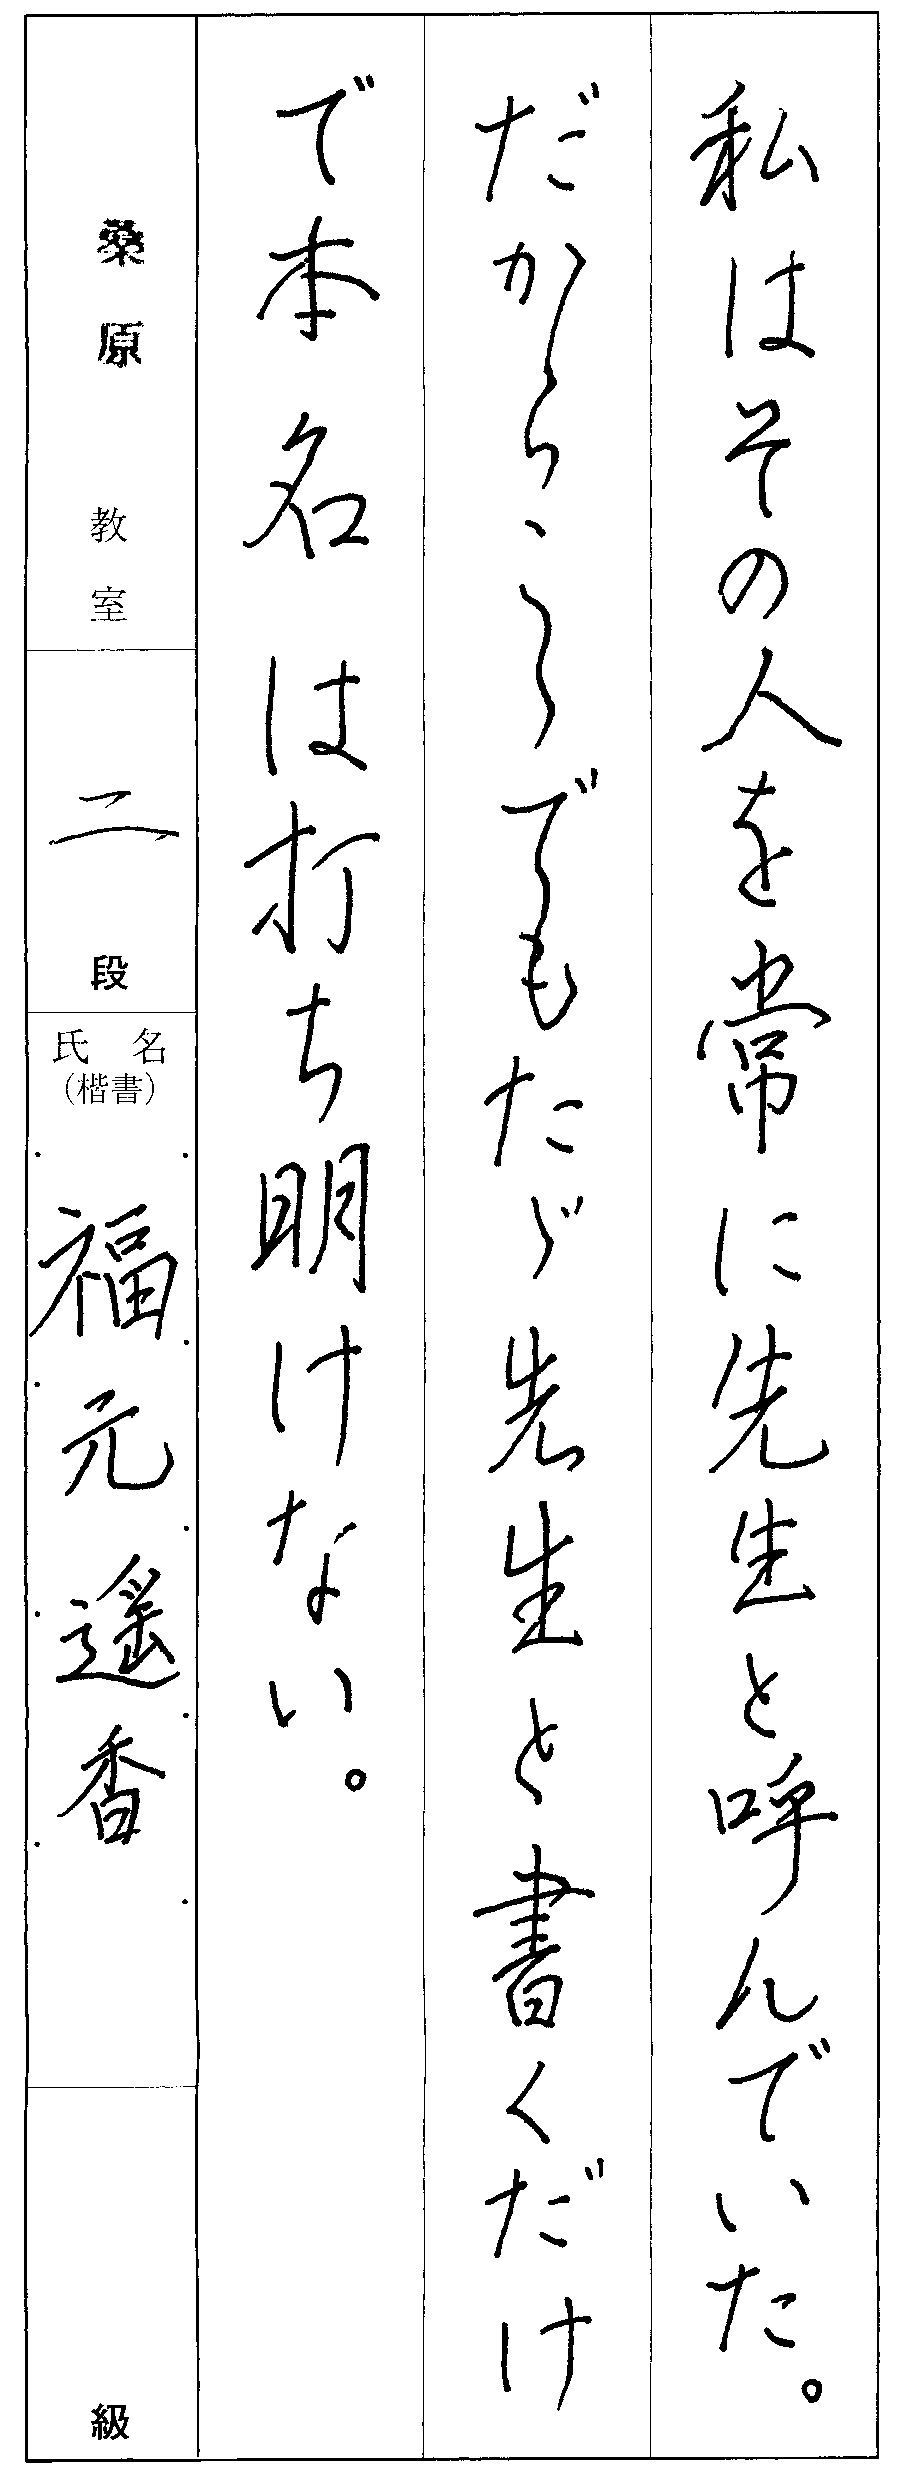 私はその人を常に先生と呼んでいた。
だからこゝでもたゞ先生と書くだけ
で本名は打ち明けない。
桑原教室
二段
氏名
(楷書)
福元遥香
級